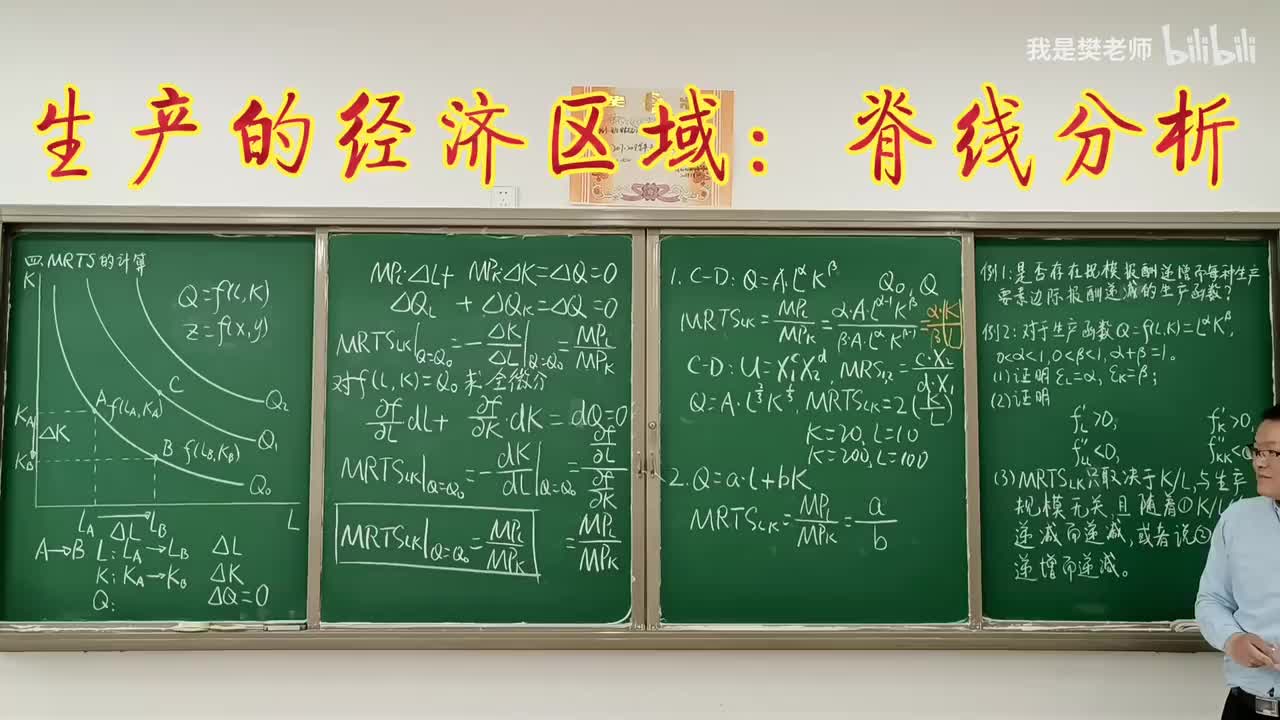 我是樊老师 bilibili
生产的经济区域：脊线分析
四、MRTS的计算
K
Q=f(L,K)
z=f(x,y)
C
A f(LA,KA)
Q2
KA
ΔK
B f(LB,KB)
Q1
KB
Q0
LA → LB
L
ΔL
A→B L: LA→LB ΔL
K: KA→KB ΔK
Q: ΔQ=0
MPL·ΔL+ MPK·ΔK=ΔQ=0
ΔQL +ΔQK=ΔQ=0
MRTSLK|Q=Q0 = -ΔK/ΔL|Q=Q0 = MPL/MPK
对f(L,K)=Q0求全微分
∂f/∂L dL+ ∂f/∂K·dK = dQ=0
MRTSLK|Q=Q0 = -dK/dL|Q=Q0 = ∂f/∂L / ∂f/∂K
MRTSLK|Q=Q0 = MPL/MPK
= MPL/MPK
1. C-D: Q=A·L^α K^β Q0, Q
MRTSLK= MPL/MPK = α·A·L^α-1 K^β / β·A·L^α K^β-1 = α·K/β·L
C-D: U=X1^c X2^d, MRS12= c·X2/d·X1
Q=A·L^2/3 K^1/3, MRTSLK=2(K/L)
K=20, L=10
K=200, L=100
2. Q=a·L+bK
MRTSLK= MPL/MPK = a/b
例1:是否存在规模报酬递增而每种生产
要素边际报酬递减的生产函数?
例2:对于生产函数Q=f(L,K)=L^αK^β,
0<α<1, 0<β<1, α+β=1。
(1)证明 εL=α, εK=β;
(2)证明
f'L>0, f'K>0,
f''LL<0, f''KK<0
(3)MRTSLK只取决于K/L,与生产
规模无关,且随着①K/L
递减而递减,或者说②
递增而递减。